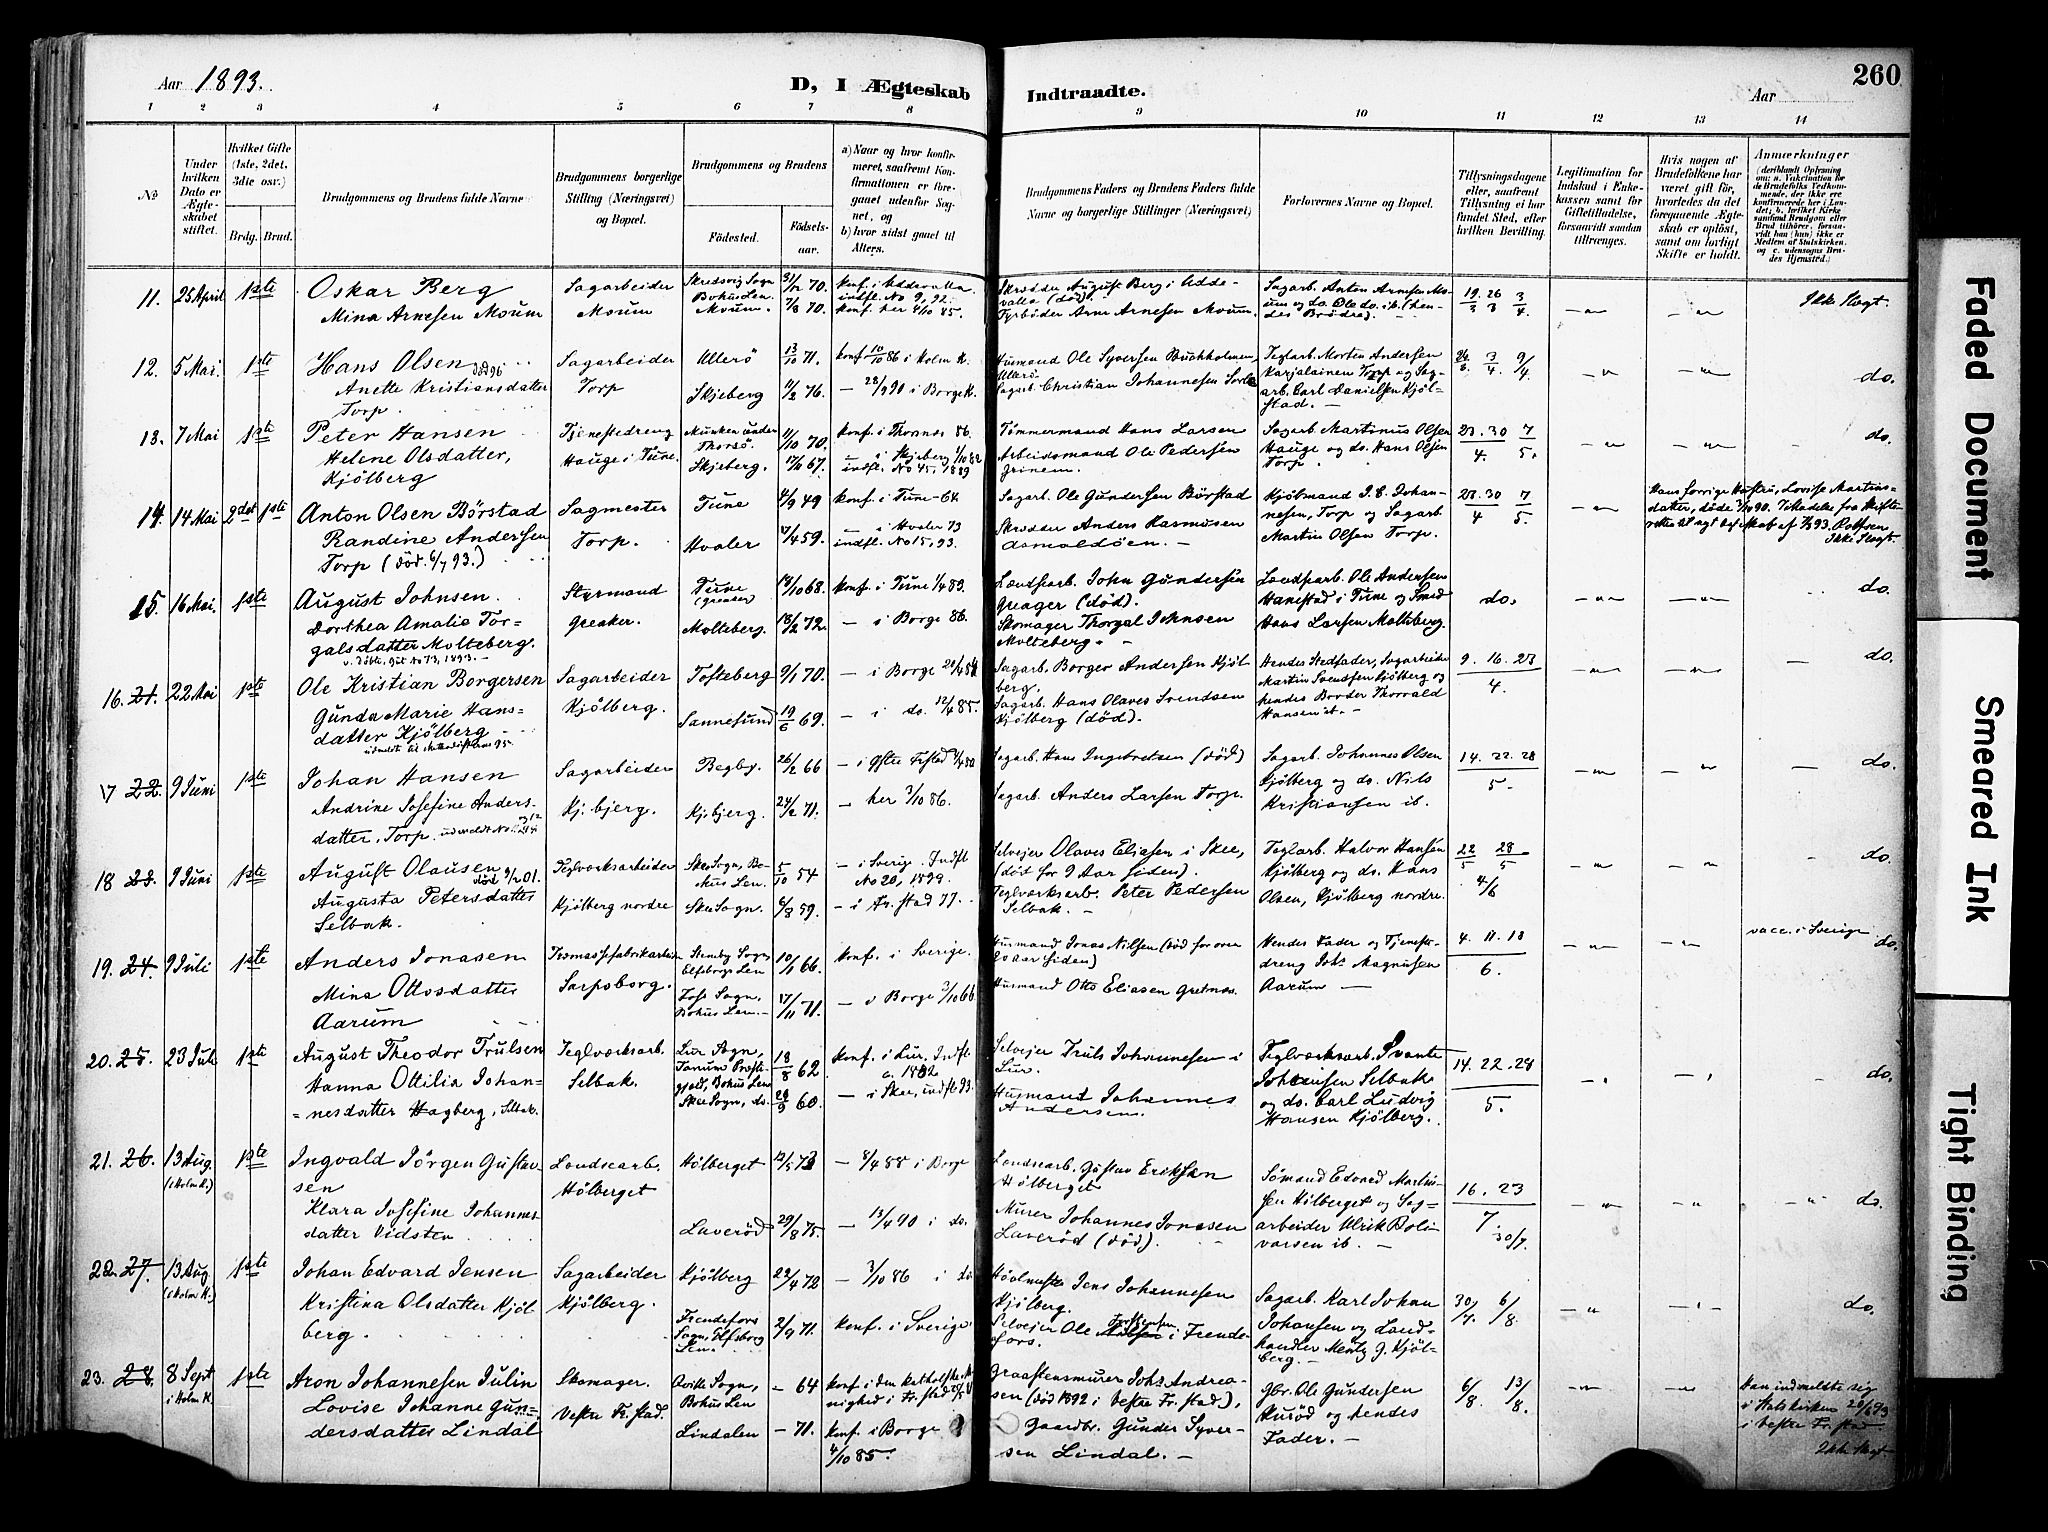 Aar 1893.
D, I Ægteskab Indtraadte.
Aar
260
1 2 3 4 5 6 7 8 9 10 11 12 13 14
No
Under hvilken Dato er Ægteskabet stiftet.
Hvilket Gifte (1ste, 2det, 3die osv.)
Brdg. Brud.
Brudgommens og Brudens fulde Navne
Brudgommens borgerlige Stilling (Næringsvei) og Bopæl.
Brudgommens og Brudens
Fødested. Fødselsaar.
a) Naar og hvor konfirmeret, saafremt Konfirmationen er foregaaet udenfor Sognet, og
b) hvor sidst gaaet til Alters.
Brudgommens Faders og Brudens Faders fulde Navne og borgerlige Stillinger (Næringsvei)
Forlovernes Navne og Bopæl.
Tillysningsdagene eller, saafremt Tillysning ei har fundet Sted, efter hvilken Bevilling.
Legitimation for Indskud i Enkekassen samt for Giftetilladelse, forsaavidt saadan tiltrænges.
Hvis nogen af Brudefolkene har været gift før, hvorledes da det foregaaende Ægteskab er opløst, samt om lovligt Skifte er holdt.
Anmærkninger
11. 25 April 1ste
Oskar Berg
Mina Arnesen Moum
Sagarbeider
Moum
Skredsvig Sogn
Bohus Len.
Moum.
31/12 70.
7/8 70.
konf. i Uddevalla
indfl. No 9, 92.
konf. her 4/10 85.
Skrædder August Berg i Uddevalla (død).
Fyrbøder Arne Arnesen Moum.
Sagarb. Anton Arnesen Moum og do. Ole do. ib. (hendes Brødre).
19. 26 3
3 3 4
Ikke Slægt.
12. 5 Mai. 1ste
Hans Olsen død 96
Anette Kristiansdatter
Torp.
Sagarbeider
Torp
Ullerö
Skjeberg
13/10 71.
11/2 76.
konf 10/10 86 i Holm K.
— 28/9 90 i Borge K.
Husmand Ole Syversen Buchholmen, Ullerö
Sagarb. Christian Johannesen
Teglarb. Morten Andersen
Karjalainen Torp og Sagarb. Carl Danielsen Kjölstad. —
do.
13. 7 Mai 1ste
Peter Hansen
Helene Olsdatter,
Kjölberg
Tjenestedreng
Hauge i Tune.
Munken under
Thorsö.
Skjeberg.
11/10 70.
17/11 67.
konf. i Thorsnes 86.
— i Skjeberg 1/10 82
indfl. No 45, 1889
Tømmermand Hans Larsen
Arbeidsmand Ole Pedersen
Grinem.
Sagarb Martinus Olsen
Hauge og do. Hans Olsen
Torp.
23. 30 7
4. 5.
do.
14. 14 Mai 2det 1ste
Anton Olsen Börstad
Randine Andersen
Torp (død. 6/7 93.)
Sagmester
Torp.
Tune
Hvaler
4/9 49
17/4 59.
konf. i Tune - 64.
— i Hvaler 73
indfl. No 15, 93.
Sagarb. Ole Gundersen Börstad
Skrædder Anders Rasmusen
Asmaløen. —
Kjöbmand J. E. Johannesen, Torp og Sagarb.
Martin Olsen Torp.
23. 30 7
4 5.
Hans forrige Hustru, Lovise Martinsdatter, døde 90.
Ikke Slægt.
15. 16 Mai. 1ste
August Johnsen.
Dorthea Amalie Torgalsdatter Molteberg.
v. Döbte. Gut No 73, 1893. —
Styrmand
Greaker.
Tune
(Greaker)
Molteberg.
13/10 68.
13/2 72.
konf. i Tune 1/4 83.
— i Borge 86.
Landsarb. John Gundersen
Greager (død).
Skomager Thorgal Johnsen
Molteberg. —
Landsarb. Ole Andersen
Hanestad i Tune og Smed
Hans Larsen Molteberg.
do.
do.
16. 21. 22 Mai 1ste
Ole Kristian Borgersen
Gunda Marie Hansdatter Kjölberg
Sagarbeider
Kjölberg.
Tofteberg
Sannesund
9/1 70.
19/6 69.
— i Borge
— i do. 12/4 85.
Sagarb. Borger Andersen Kjölberg.
Sagarb. Hans Olaves Svendsen
Kjölberg (død).
Hendes Stedfader, Sagarbeider
Martin Svendsen Kjölberg og
hendes Broder Thorvald
Hansen ib. —
9. 16. 23
4.
do.
17 22. 9 Juni 1ste
Johan Hansen
Andrine Josefine Andersdatter, Torp.
Sagarbeider
Kj. bjerg.
Begby.
Kj. bjerg.
26/2 66
24/2 71.
— i Østre Frstad
— her 3/10 86.
Sagarb. Hans Ingebretsen (død)
Sagarb. Anders Larsen Torp.
Sagarb. Johannes Olsen
Kjölberg og do. Nils
Kristiansen ib.
14. 22. 28
5.
do.
18 23. 9 Juni 1ste
August Olausen
død 9/2 01.
Augusta Petersdatter
Selbak.
Teglværksarbeider
Kjölberg nordre
Skee Sogn, Bohus Len.
Skee Sogn.
5/10 54
6/3 59.
— i Sverige. Indfl
No 20, 1899.
— i Fr. stad 77.
Selvejer Olaves Eliasen i Skee,
(død for 9 Aar siden).
Teglværksarb. Peter Pedersen
Selbak. —
Teglarb. Halvor Hansen
Kjölberg og do. Hans
Olsen, Kjölberg nordre.
22 28
5 5
4/6
do.
19. 24. 9 Juli 1ste
Anders Jonasen
Mina Ottosdatter
Aarum
Træmassefabrikarbeider
Sarpsborg.
Steneby Sogn
Elfsborgs Len
Tose Sogn,
Bohus Len. —
10/1 66.
17/11 71.
konf. i Sverige.
— i Borge 3/10 86.
Husmand Jonas Nilsen (død for over
20 aar siden)
Husmand Otto Eliasen Gretnes.
Hendes Fader og Tjenestdreng Johs Magnusen
Aarum —
4. 11. 18
6.
vacc. i Sverige.
do.
20. 25. 23 Juli 1ste
August Theodor Trulsen
Hanna Ottilia Johannesdatter Hagberg, Selbak.
Teglværksarb.
Selbak.
Lur Sogn,
Tanum Prestegjeld, Bohus Len
Skee Sogn, do.
18/8 62
28/9 60.
konf. i Lur, Indfl.
a. 1882
— i Skee, indfl. 93.
Selveier Truls Johannesen i
Lur.
Husmand Johannes
Andersen.
Teglværksarb. Svante
Johansen Selbak
og do. Carl Ludvig
Hansen Kjölberg.
14. 22. 28
5.
do.
21. 26. 13 Aug. 1ste
(i Holm K.)
Ingvald Jörgen Gustavsen
Klara Josefine Johannesdatter Vidsten
Landsearb.
Hölberget
Hölberget
Laveröd
12/5 73
29/8 75.
— 8/4 88 i Borge
— 13/4 90 i do.
Landsearb. Gustav Eriksen
Hölberget
Murer Johannes Jonasen
Laveröd (død).
Sømand Edvard Martinsen Hölberget og Sagarbeider Ulrik Bolivarsen ib. —
16. 23
7.
30/7.
do.
22. 27. 13 Aug. 1ste
(i Holm K.)
Johan Edvard Jensen
Kristina Olsdatter Kjölberg.
Sagarbeider
Kjölberg.
Kjölberg
Frendefors
Sogn, Elfsborg
Len.
29/4 72
2/9 71.
— 3/10 86 i do
konf. i Sverige
Høvlmester Jens Johannesen
Kjölberg.
Selvejer Ole i Frendefors.
Sagarb. Karl Johan
Johansen og Landhandler Mentz G. Kjölberg. —
30/7. 6/8.
do.
23. 28. 8 Sept 1ste
i Holm K.
Aron Johannesen Julin
Lovise Johanne Gundersdatter Lindal
Skomager.
Vestre Fr. stad.
Qville Sogn,
Bohus Len
Lindalen
— 64
— 71.
konf. i den katholske Menighed i Fr. stad
konf. i Borge
4/10 85.
Graastensmurer Johs Andreasen (død 1892 i vestre Fr. stad),
Gaardbr. Gunder Syversen Lindal. —
Gbr. Ole Gundersen
Huröd og hendes
Fader. —
6/8. 13/8.
Han indmeldte sig
i Statskirken 20/6 93
i vestre Fr. stad
Ikke Slægt.
Faded Document
Smeared Ink
Tight Binding